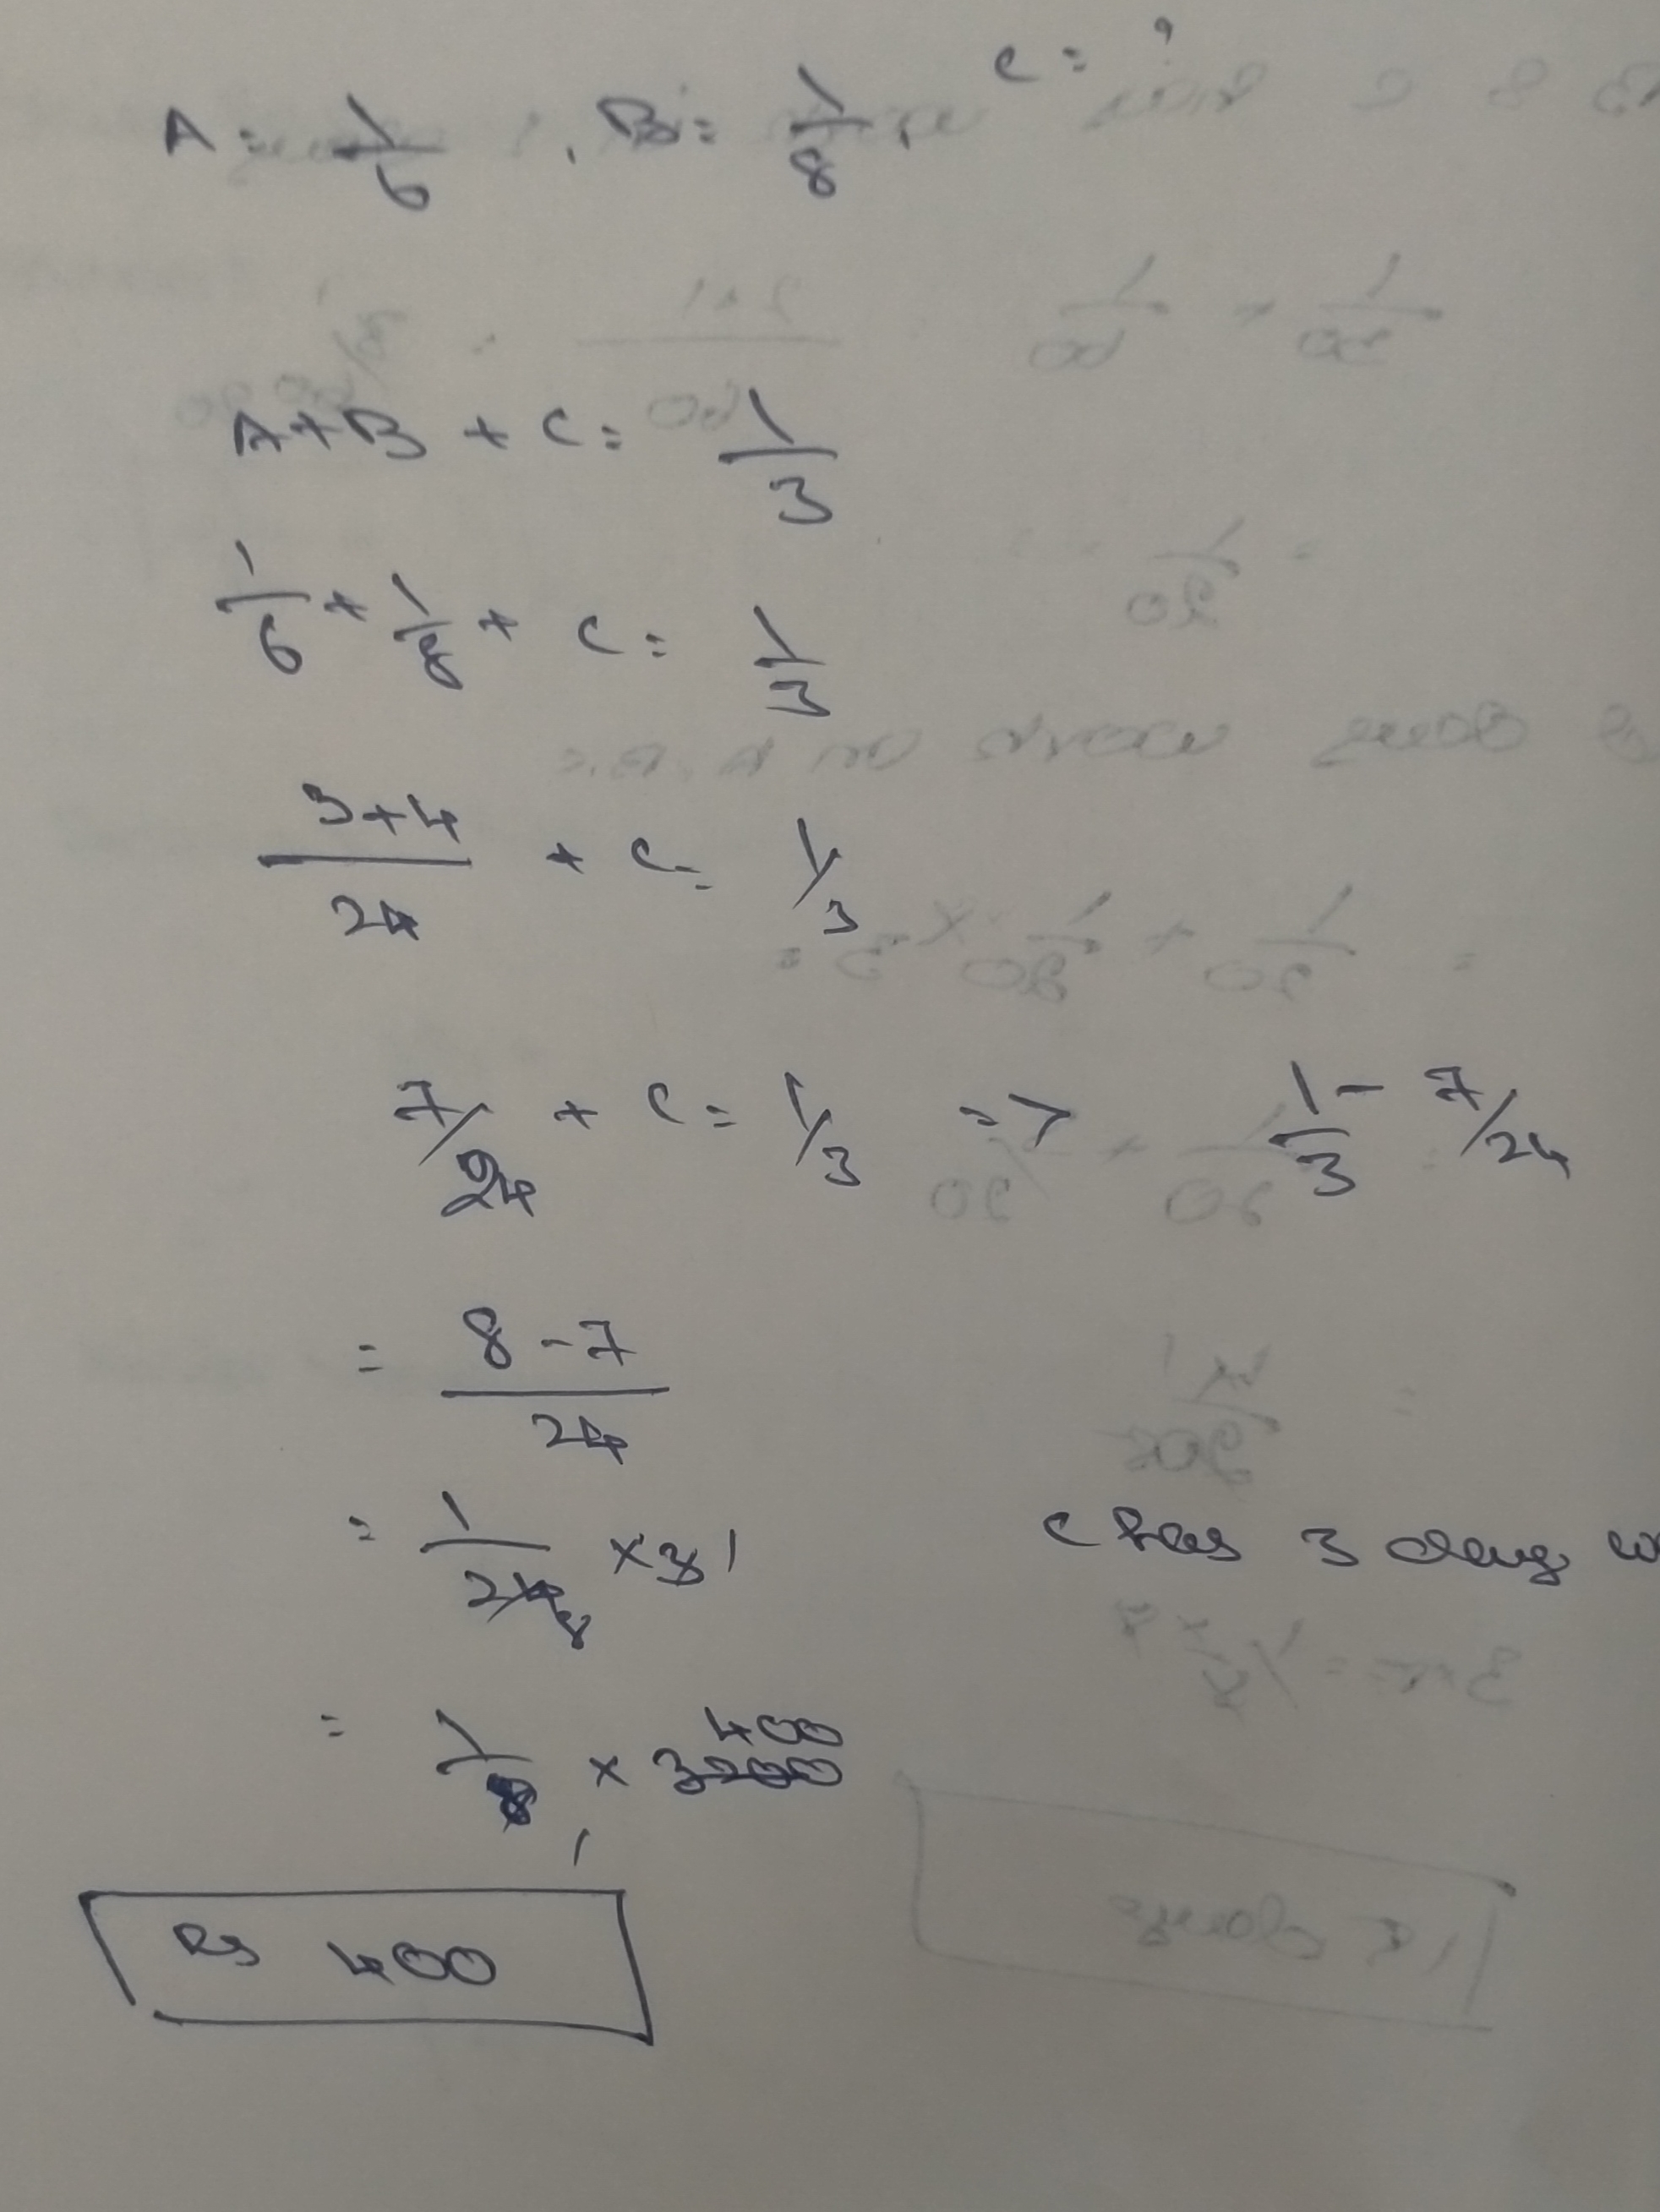 A = 1/6 , B = 1/8 , C = ?
A+B + C = 1/3
1/6 + 1/8 + C = 1/3
3+4/24 + C = 1/3
7/24 + C = 1/3 => 1/3 - 7/24
= 8-7/24
= 1/24 8 × 3 1 C has 3 days
= 1/8 1 × 3200 400
Rs 400